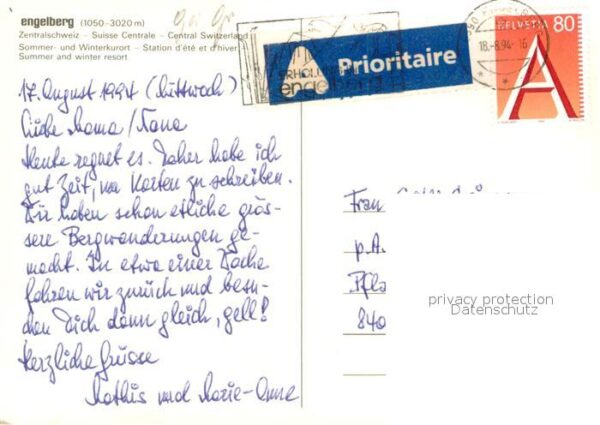 engelberg (1050-3020 m)
Zentralschweiz – Suisse Centrale – Central Switzerland
Sommer- und Winterkurort – Station d'été et d'hiver
Summer and winter resort
Prioritaire
HELVETIA 80
A
18.-8.94-16
engelberg
17. August 1994 (Mittwoch)
Liebe Mama / Nana
Heute regnet es. Daher habe ich
gut Zeit, um Karten zu schreiben.
Wir haben schon etliche grös-
sere Bergwanderungen ge-
macht. In etwa einer Woche
fahren wir zurück und besu-
chen Dich dann gleich, gell!
Herzliche Grüsse
Mathis und Marie-Anne
Frau
p.A.
Pfla
840
privacy protection
Datenschutz